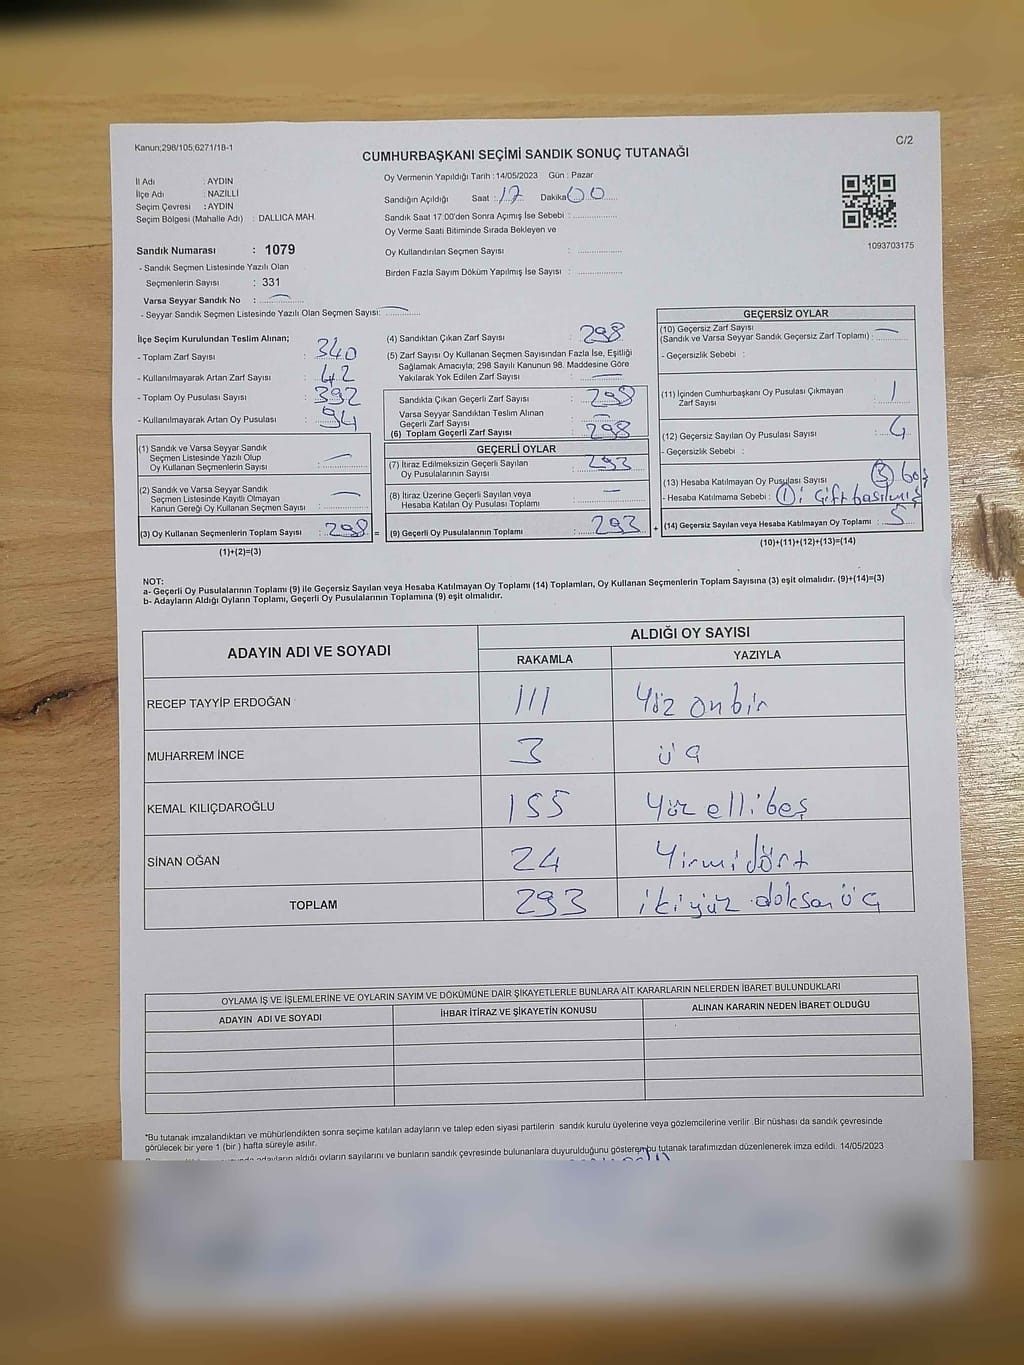 Kanun;298/105;6271/18-1
C/2
CUMHURBAŞKANI SEÇİMİ SANDIK SONUÇ TUTANAĞI
İl Adı : AYDIN
İlçe Adı : NAZİLLİ
Seçim Çevresi : AYDIN
Seçim Bölgesi (Mahalle Adı) : DALLICA MAH
Oy Vermenin Yapıldığı Tarih : 14/05/2023 Gün : Pazar
Sandığın Açıldığı Saat : 17 Dakika 00
Sandık Saat 17.00'den Sonra Açımış İse Sebebi :
Oy Verme Saati Bitiminde Sırada Bekleyen ve
Oy Kullandırılan Seçmen Sayısı :
Birden Fazla Sayım Döküm Yapılmış İse Sayısı :
1093703175
Sandık Numarası : 1079
- Sandık Seçmen Listesinde Yazılı Olan
Seçmenlerin Sayısı : 331
Varsa Seyyar Sandık No : —
- Seyyar Sandık Seçmen Listesinde Yazılı Olan Seçmen Sayısı: —
İlçe Seçim Kurulundan Teslim Alınan;
- Toplam Zarf Sayısı : 340
- Kullanılmayarak Artan Zarf Sayısı : 42
- Toplam Oy Pusulası Sayısı : 392
- Kullanılmayarak Artan Oy Pusulası : 94
(1) Sandık ve Varsa Seyyar Sandık
Seçmen Listesinde Yazılı Olup
Oy Kullanan Seçmenlerin Sayısı : —
(2) Sandık ve Varsa Seyyar Sandık
Seçmen Listesinde Kayıtlı Olmayan
Kanun Gereği Oy Kullanan Seçmen Sayısı : —
(3) Oy Kullanan Seçmenlerin Toplam Sayısı : 298 =
(1)+(2)=(3)
(4) Sandıktan Çıkan Zarf Sayısı : 298
(5) Zarf Sayısı Oy Kullanan Seçmen Sayısından Fazla İse, Eşitliği
Sağlamak Amacıyla; 298 Sayılı Kanunun 98. Maddesine Göre
Yakılarak Yok Edilen Zarf Sayısı : —
Sandıkta Çıkan Geçerli Zarf Sayısı : 298
Varsa Seyyar Sandıktan Teslim Alınan
Geçerli Zarf Sayısı : —
(6) Toplam Geçerli Zarf Sayısı : 298
GEÇERLİ OYLAR
(7) İtiraz Edilmeksizin Geçerli Sayılan
Oy Pusulalarının Sayısı : 293
(8) İtiraz Üzerine Geçerli Sayılan veya
Hesaba Katılan Oy Pusulası Toplamı : —
(9) Geçerli Oy Pusulalarının Toplamı : 293 +
GEÇERSİZ OYLAR
(10) Geçersiz Zarf Sayısı
(Sandık ve Varsa Seyyar Sandık Geçersiz Zarf Toplamı) : —
- Geçersizlik Sebebi :
(11) İçinden Cumhurbaşkanı Oy Pusulası Çıkmayan
Zarf Sayısı : 1
(12) Geçersiz Sayılan Oy Pusulası Sayısı : 4
- Geçersizlik Sebebi :
(13) Hesaba Katılmayan Oy Pusulası Sayısı : 3 boş
- Hesaba Katılmama Sebebi : 1: çift basılmış
(14) Geçersiz Sayılan veya Hesaba Katılmayan Oy Toplamı : 5
(10)+(11)+(12)+(13)=(14)
NOT:
a- Geçerli Oy Pusulalarının Toplamı (9) ile Geçersiz Sayılan veya Hesaba Katılmayan Oy Toplamı (14) Toplamları, Oy Kullanan Seçmenlerin Toplam Sayısına (3) eşit olmalıdır. (9)+(14)=(3)
b- Adayların Aldığı Oyların Toplamı, Geçerli Oy Pusulalarının Toplamına (9) eşit olmalıdır.
ADAYIN ADI VE SOYADI ALDIĞI OY SAYISI
RAKAMLA YAZIYLA
RECEP TAYYİP ERDOĞAN 111 Yüz onbir
MUHARREM İNCE 3 üç
KEMAL KILIÇDAROĞLU 155 Yüz ellibeş
SİNAN OĞAN 24 Yirmidört
TOPLAM 293 ikiyüz doksan üç
OYLAMA İŞ VE İŞLEMLERİNE VE OYLARIN SAYIM VE DÖKÜMÜNE DAİR ŞİKAYETLERLE BUNLARA AİT KARARLARIN NELERDEN İBARET BULUNDUKLARI
ADAYIN ADI VE SOYADI İHBAR İTİRAZ VE ŞİKAYETİN KONUSU ALINAN KARARIN NEDEN İBARET OLDUĞU
*Bu tutanak imzalandıktan ve mühürlendikten sonra seçime katılan adayların ve talep eden siyasi partilerin sandık kurulu üyelerine veya gözlemcilerine verilir. Bir nüshası da sandık çevresinde
görülecek bir yere 1 (bir ) hafta süreyle asılır.
adayların aldığı oyların sayılarını ve bunların sandık çevresinde bulunanlara duyurulduğunu gösteren bu tutanak tarafımızdan düzenlenerek imza edildi. 14/05/2023